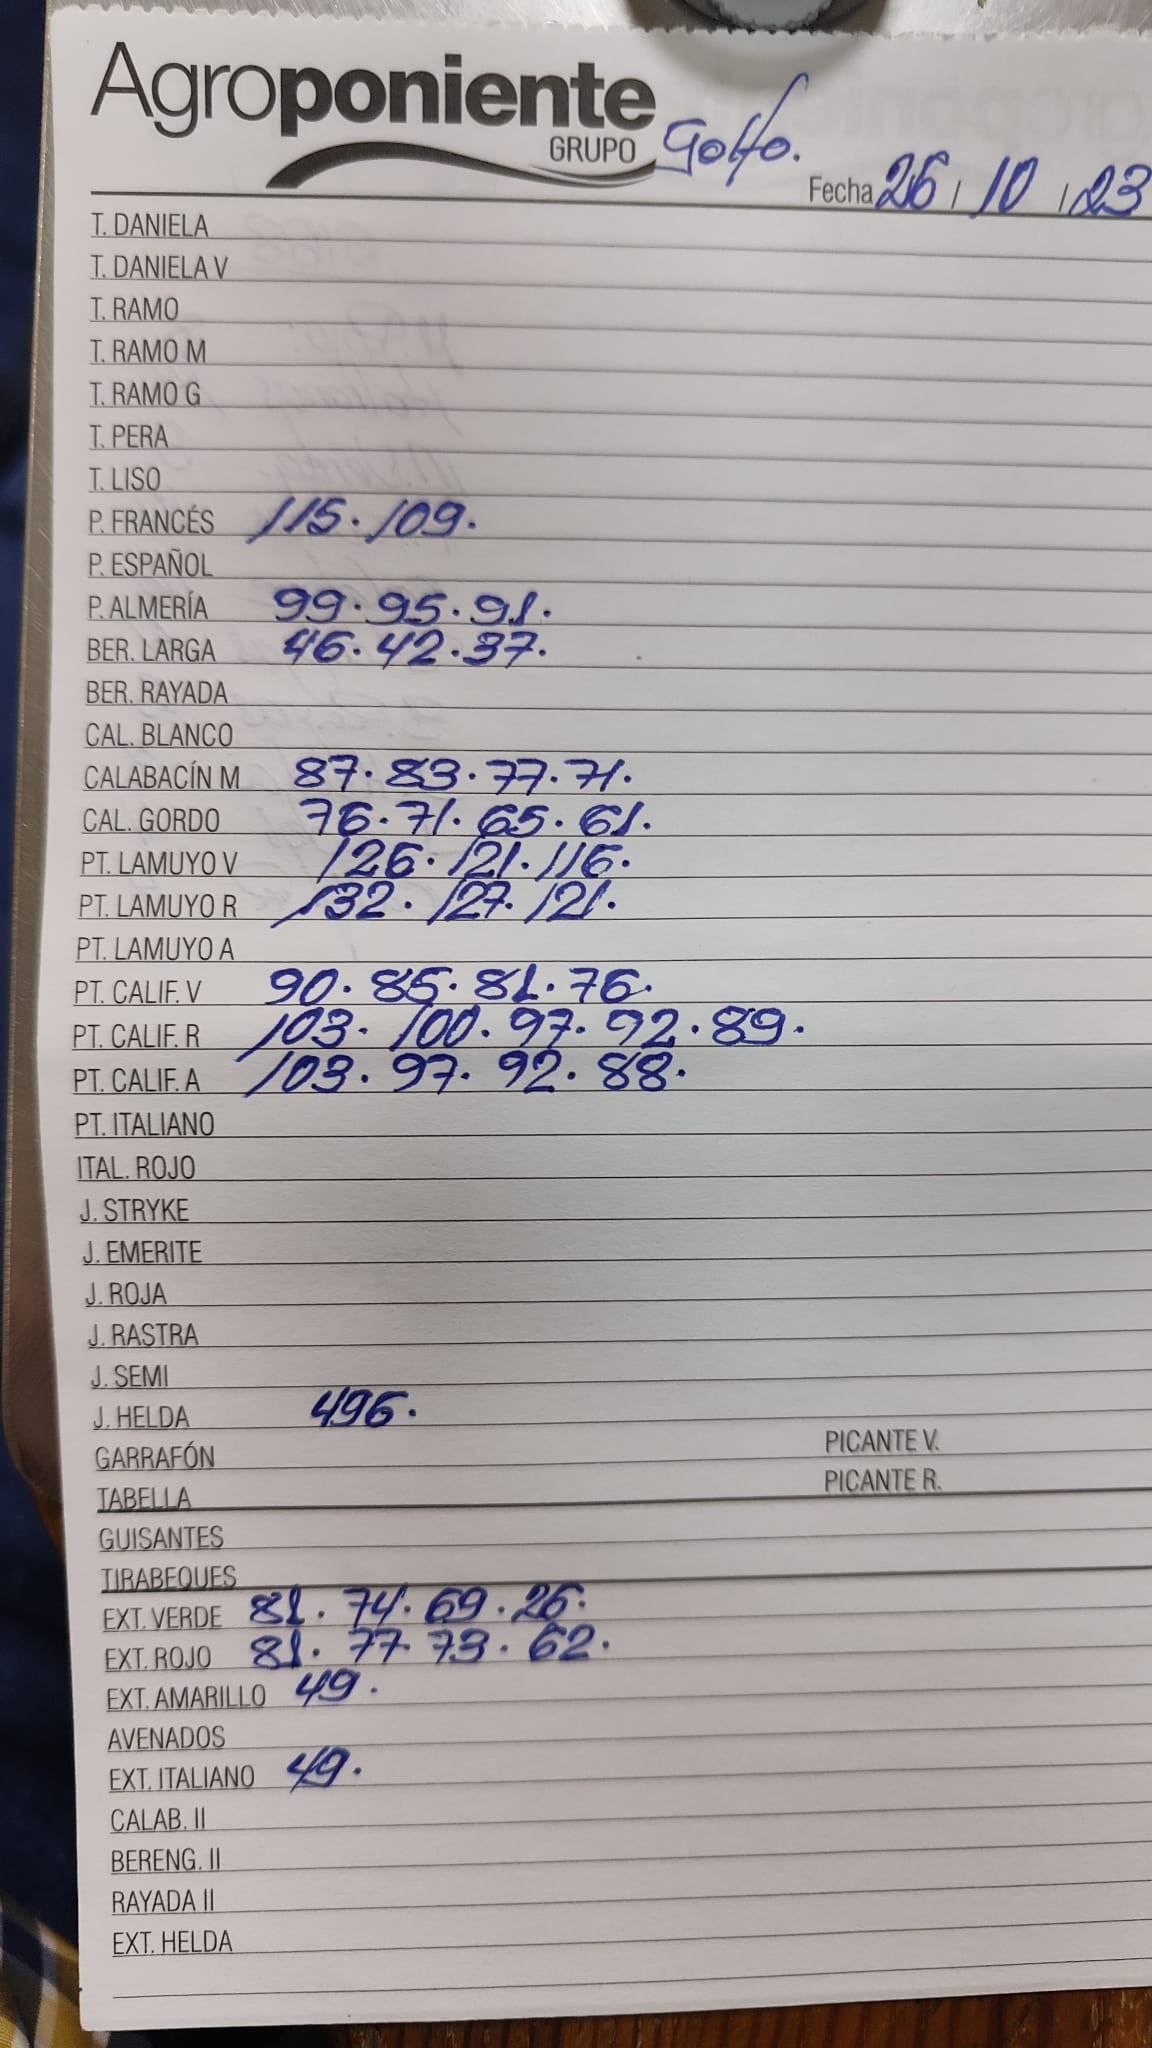 Agroponiente
GRUPO
Golfo.
Fecha 26 / 10 / 23
T. DANIELA
T. DANIELA V
T. RAMO
T. RAMO M
T. RAMO G
T. PERA
T. LISO
P. FRANCÉS 115. 109.
P. ESPAÑOL
P. ALMERÍA 99. 95. 91.
BER. LARGA 46. 42. 37.
BER. RAYADA
CAL. BLANCO
CALABACÍN M 87. 83. 77. 71.
CAL. GORDO 76. 71. 65. 61.
PT. LAMUYO V 126. 121. 116.
PT. LAMUYO R 132. 127. 121.
PT. LAMUYO A
PT. CALIF. V 90. 85. 81. 76.
PT. CALIF. R 103. 100. 97. 92. 89.
PT. CALIF. A 103. 97. 92. 88.
PT. ITALIANO
ITAL. ROJO
J. STRYKE
J. EMERITE
J. ROJA
J. RASTRA
J. SEMI
J. HELDA 496.
GARRAFÓN PICANTE V.
TABELLA PICANTE R.
GUISANTES
TIRABEQUES
EXT. VERDE 81. 74. 69. 26.
EXT. ROJO 81. 77. 73. 62.
EXT. AMARILLO 49.
AVENADOS
EXT. ITALIANO 49.
CALAB. II
BERENG. II
RAYADA II
EXT. HELDA